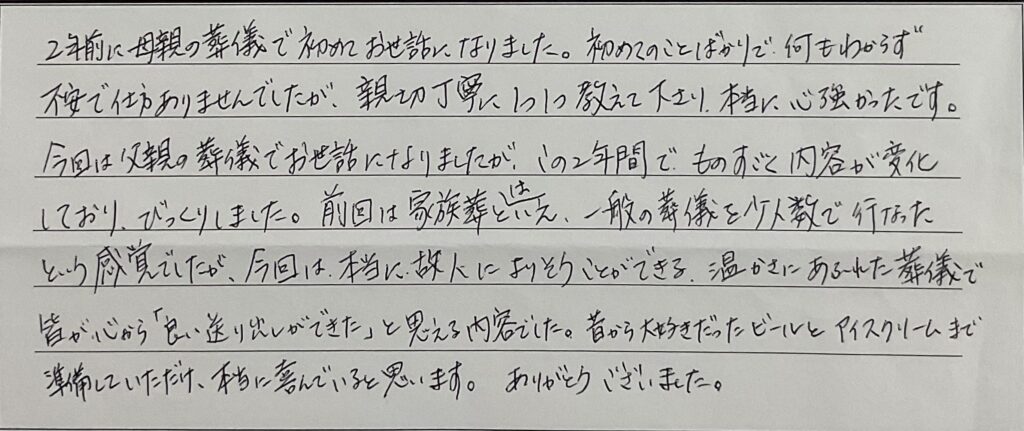 2年前に母親の葬儀で初めてお世話になりました。初めてのことばかりで何もわからず
不安で仕方ありませんでしたが、親切丁寧に1つ1つ教えて下さり、本当に心強かったです。
今回は父親の葬儀でお世話になりましたが、この2年間で、ものすごく内容が変化
しており、びっくりしました。前回は家族葬とはいえ、一般の葬儀を少人数で行なった
という感覚でしたが、今回は、本当に、故人によりそうことができる、温かさにあふれた葬儀で
皆が心から「良い送り出しができた」と思える内容でした。昔から大好きだったビールとアイスクリームまで
準備していただけ、本当に喜んでいると思います。 ありがとうございました。